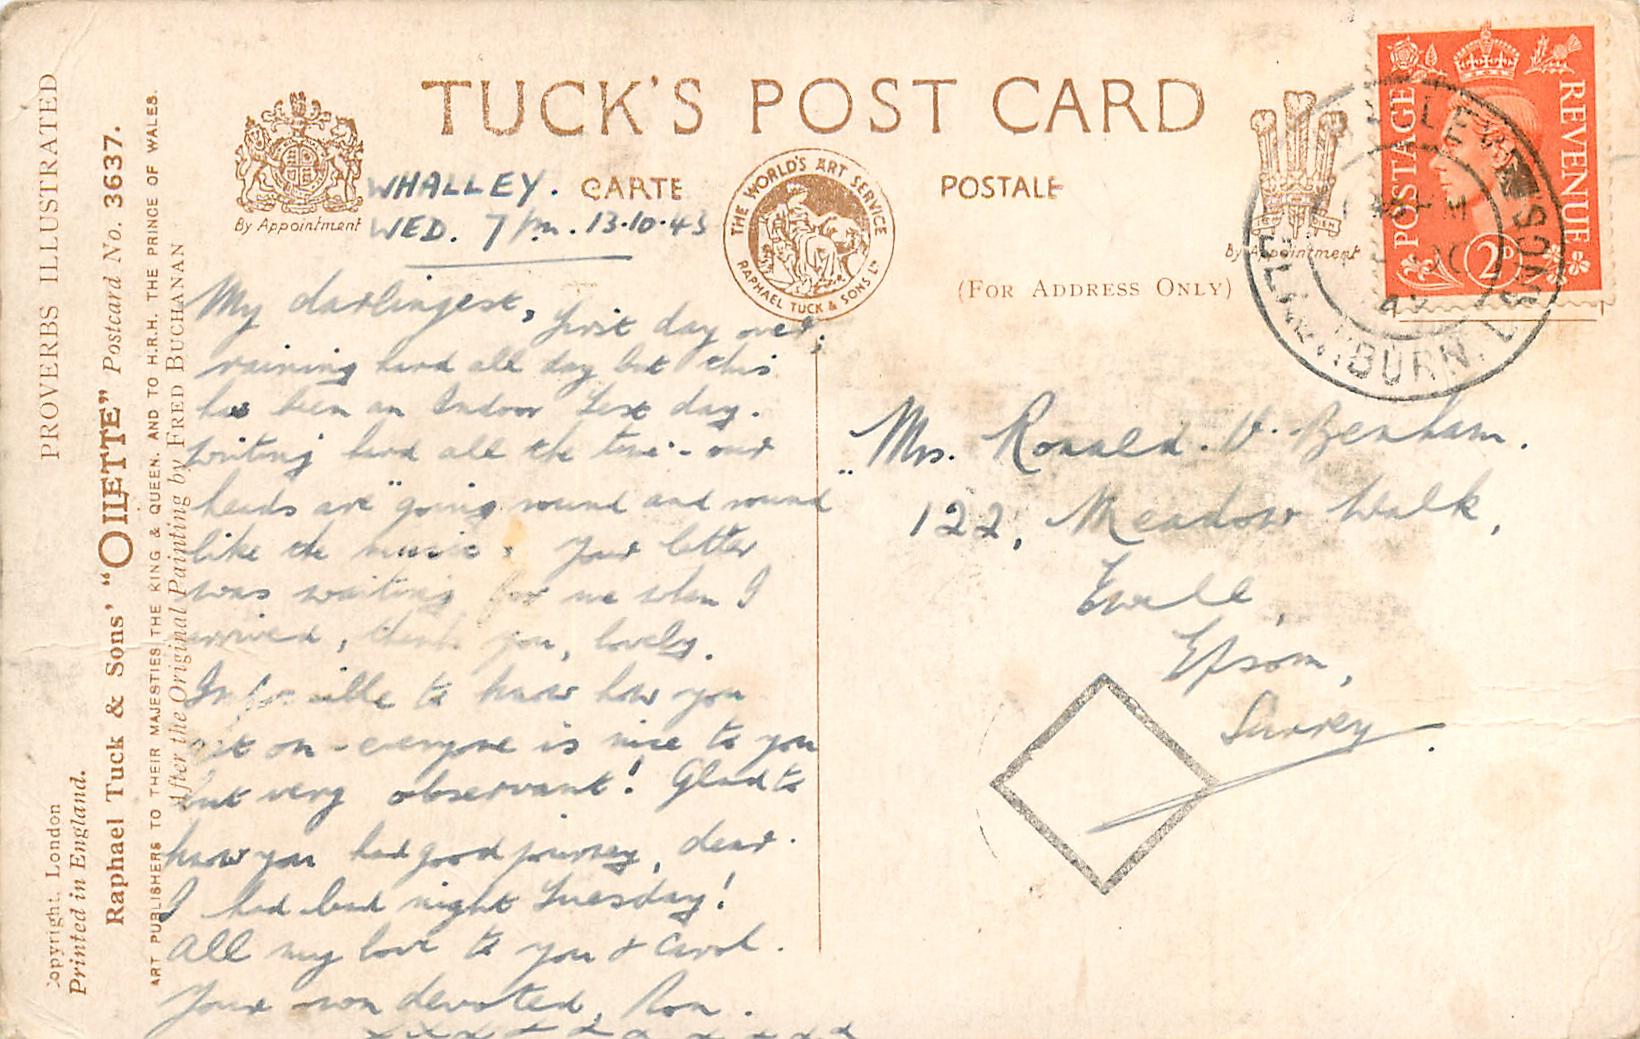 TUCK'S POST CARD
CARTE POSTALE
By Appointment
THE WORLD'S ART SERVICE
RAPHAEL TUCK & SONS LTD
By Appointment
(FOR ADDRESS ONLY)
POSTAGE REVENUE
2D
BLACKBURN, LANCS
PROVERBS ILLUSTRATED
Copyright, London
Printed in England.
Raphael Tuck & Sons' "OILETTE" Postcard No. 3637.
ART PUBLISHERS TO THEIR MAJESTIES THE KING & QUEEN, AND TO H.R.H. THE PRINCE OF WALES.
After the Original Painting by FRED BUCHANAN
WHALLEY.
WED. 7 pm. 13.10.43
My darlingest, first day over,
raining hard all day but this
has been an Indoor Test day.
Writing hard all the time - our
heads are "going round and round"
like the music. Your letter
was waiting for me when I
arrived, thank you, lovely.
Impossible to know how you
get on - everyone is nice to you
but very observant! Glad to
know you had good journey, dear.
I had bad night Tuesday!
All my love to you & Carol.
Your own devoted, Ron.
x x x x x x x x x x x
Mrs. Ronald. V. Benham.
122, Meadow Walk,
Ewell,
Epsom,
Surrey.